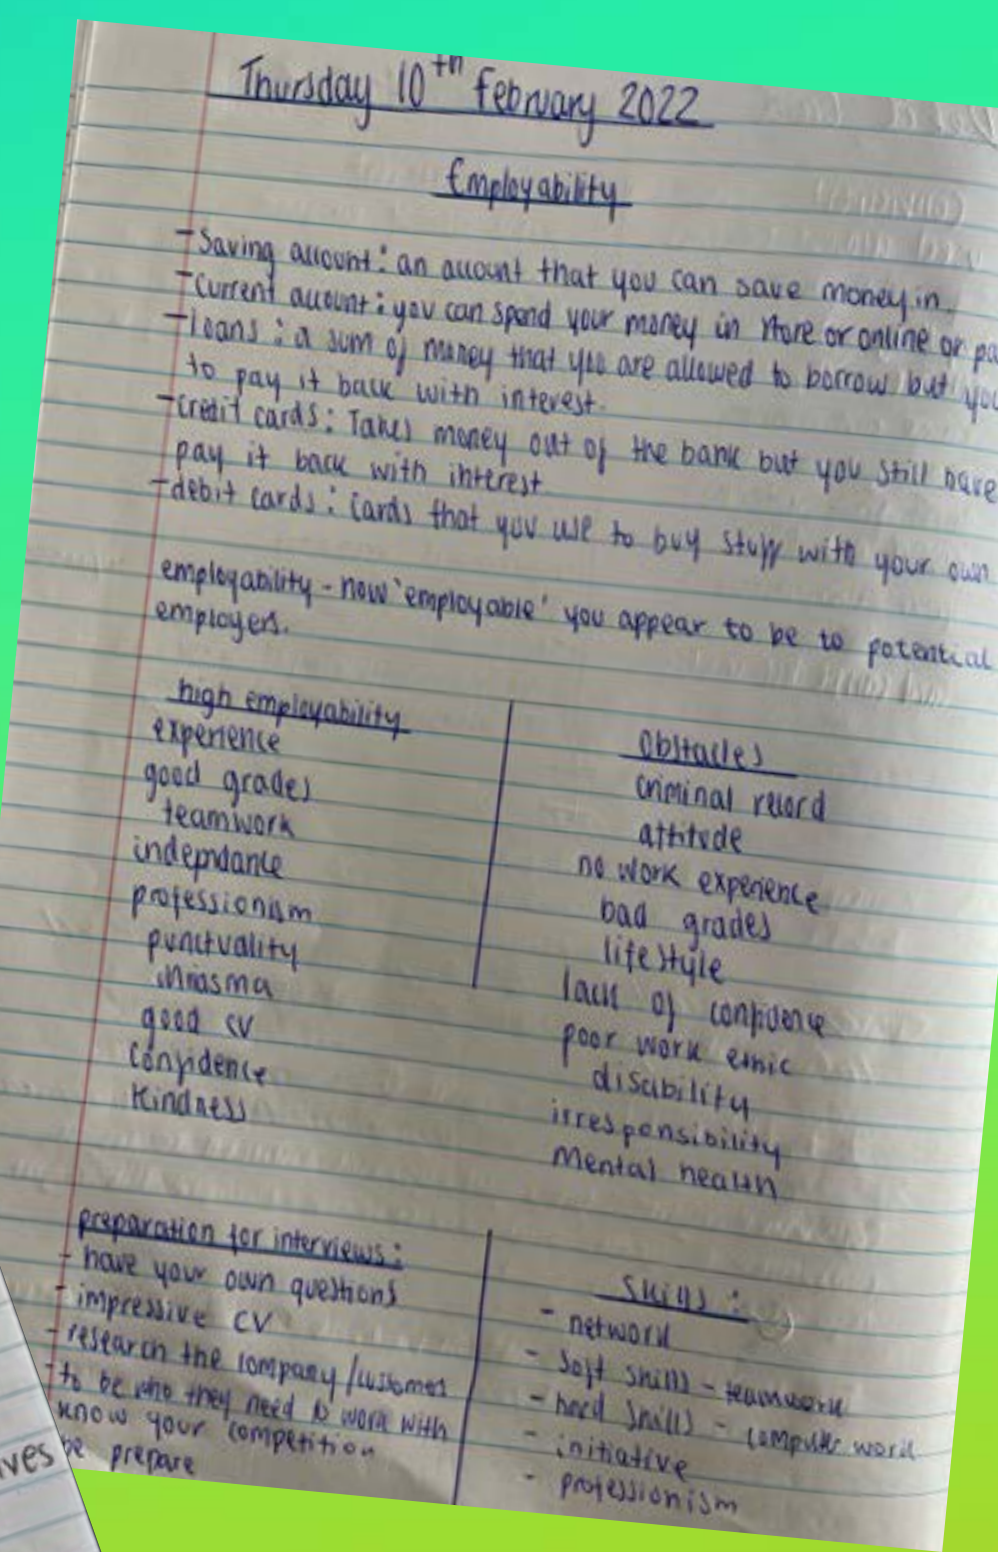 Thursday 10th february 2022
Employability
- Saving account: an account that you can save money in.
- Current account: you can spend your money in store or online or pa
- loans: a sum of money that you are allowed to borrow but you
to pay it back with interest.
- credit cards: Takes money out of the bank but you still have
pay it back with interest
- debit cards: cards that you use to buy stuff with your own
employability - how 'employable' you appear to be to potential
employers.
high employability
experience
good grades
teamwork
indepndance
professionism
punctuality
chrasma
good cv
Confidence
Kindness
Obstacles
criminal record
attitude
no work experience
bad grades
lifestyle
lack of confidence
poor work ethic
disability
irresponsibility
mental health
preparation for interviews:
- have your own questions
- impressive CV
- research the company/customes
- to be who they need to work with
know your competition
be prepare
Skills:
- network
- soft skills - teamwork
- hard skills - computer work
- initiative
- professionism
ves